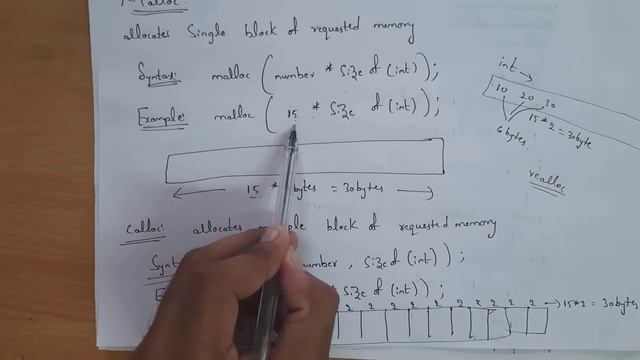 Malloc:
allocates Single block of requested memory
Syntax: malloc (number * Size of (int));
Example: malloc (15 * Size of (int));
15 * bytes = 30bytes
int →
10 20 30
15*2=30byte
6 bytes
realloc
Calloc: allocates block of requested memory
Synt number, Size of (int));
Size of (int));
2 2 2 2 2 2 2 2 2 → 15*2 = 30bytes